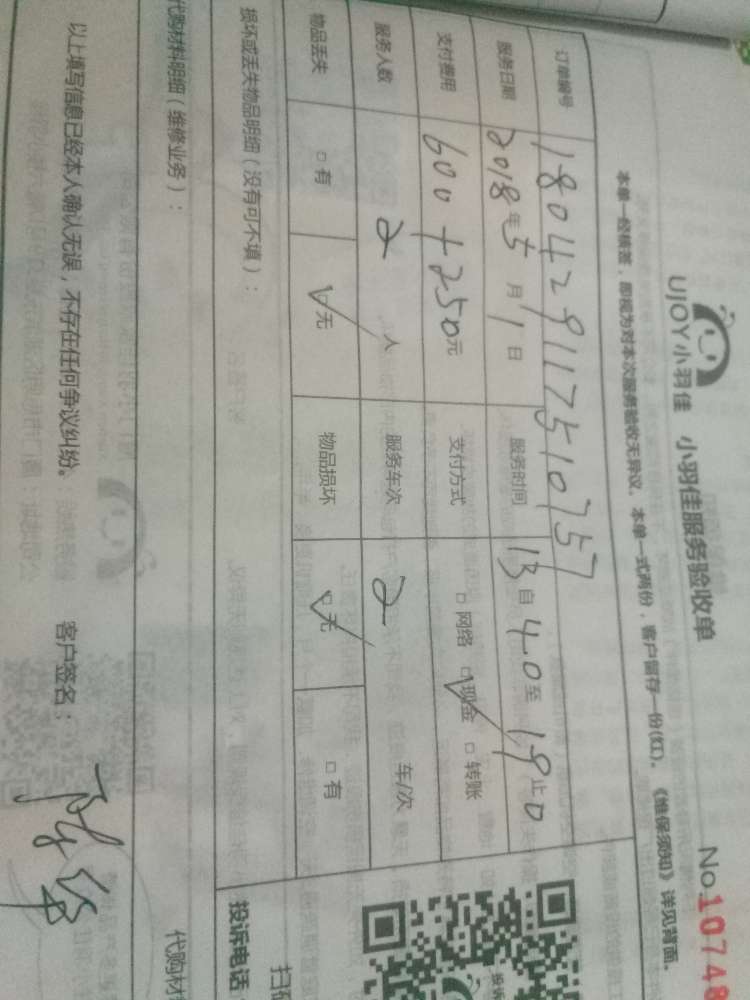 UJOY小羽佳 小羽佳服务验收单 No.10748
本单一经核签，即视为对本次服务验收无异议。本单一式两份，客户留存一份(红)。《维保须知》详见背面。
订单编号 180429117510757
服务日期 2018年5月1日 服务时间 13自40至19止0
支付费用 600+250元 支付方式 □网络 □现金 □转账
服务人数 2人 服务车次 2 车/次
物品丢失 □有 □无 物品损坏 □无 □有
损坏或丢失物品明细（没有可不填）：
投诉电话
代购材料明细（维修业务）： 代购材
以上填写信息已经本人确认无误，不存在任何争议纠纷。 客户签名：